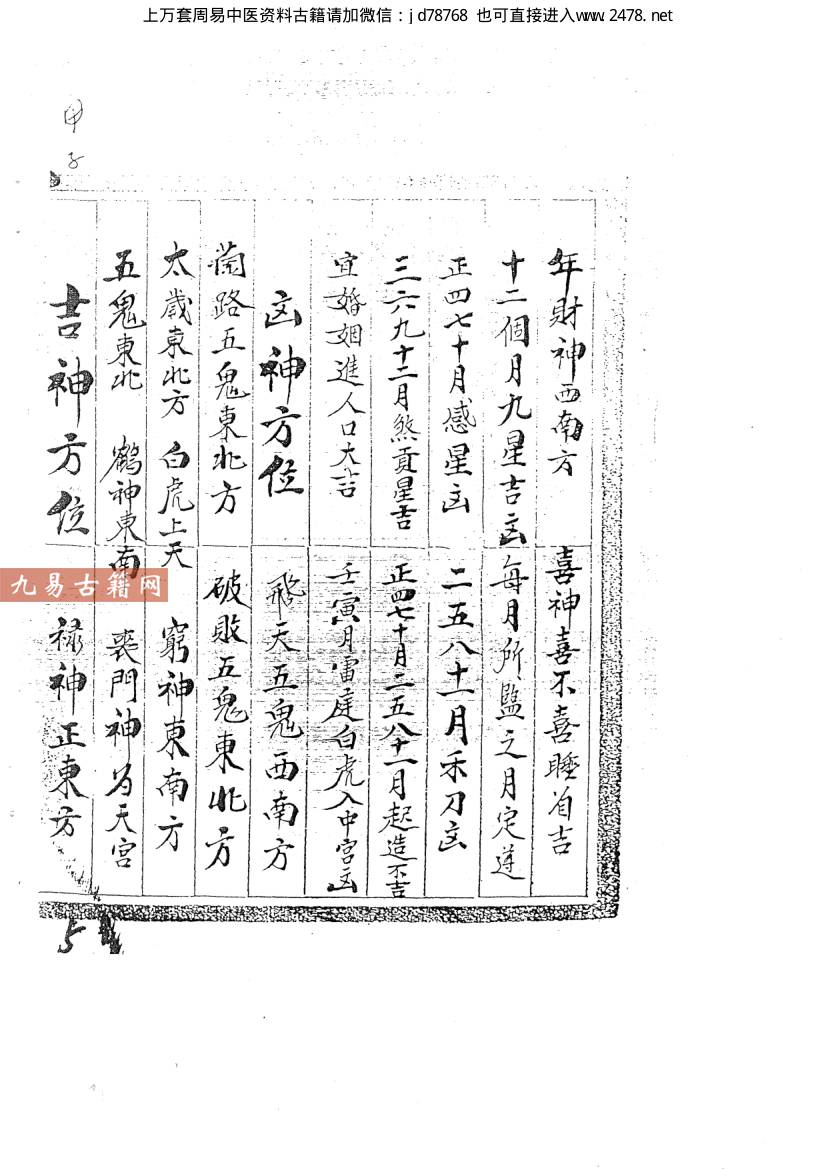 上万套周易中医资料古籍请加微信：jd78768 也可直接进入www.2478.net
甲子
年財神西南方 喜神喜不喜睡首吉
十二個月九星吉㐫 每月所監之月定遵
正四七十月惑星㐫 二五八十一月禾刀㐫
三六九十二月煞貢星吉 正四七十月二五八十一月起造不吉
宜婚姻進人口大吉 壬寅月雷庭白虎入中宮㐫
㐫神方位 飛天五鬼西南方
路五鬼東北方 破敗五鬼東北方
太歲東北方 白虎上天 窮神東南方
五鬼東北 鶴神東南 喪門神为天宮
吉神方位 祿神正東方
九易古籍网
5